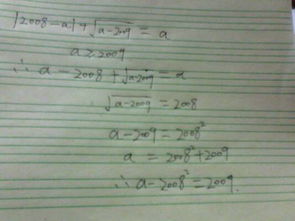 |2008-a|+√a-2009 = a
a≥2009
∴ a-2008+√a-2009 = a
√a-2009 = 2008
a-2009 = 2008²
a = 2008²+2009
∴ a-2008² = 2009.